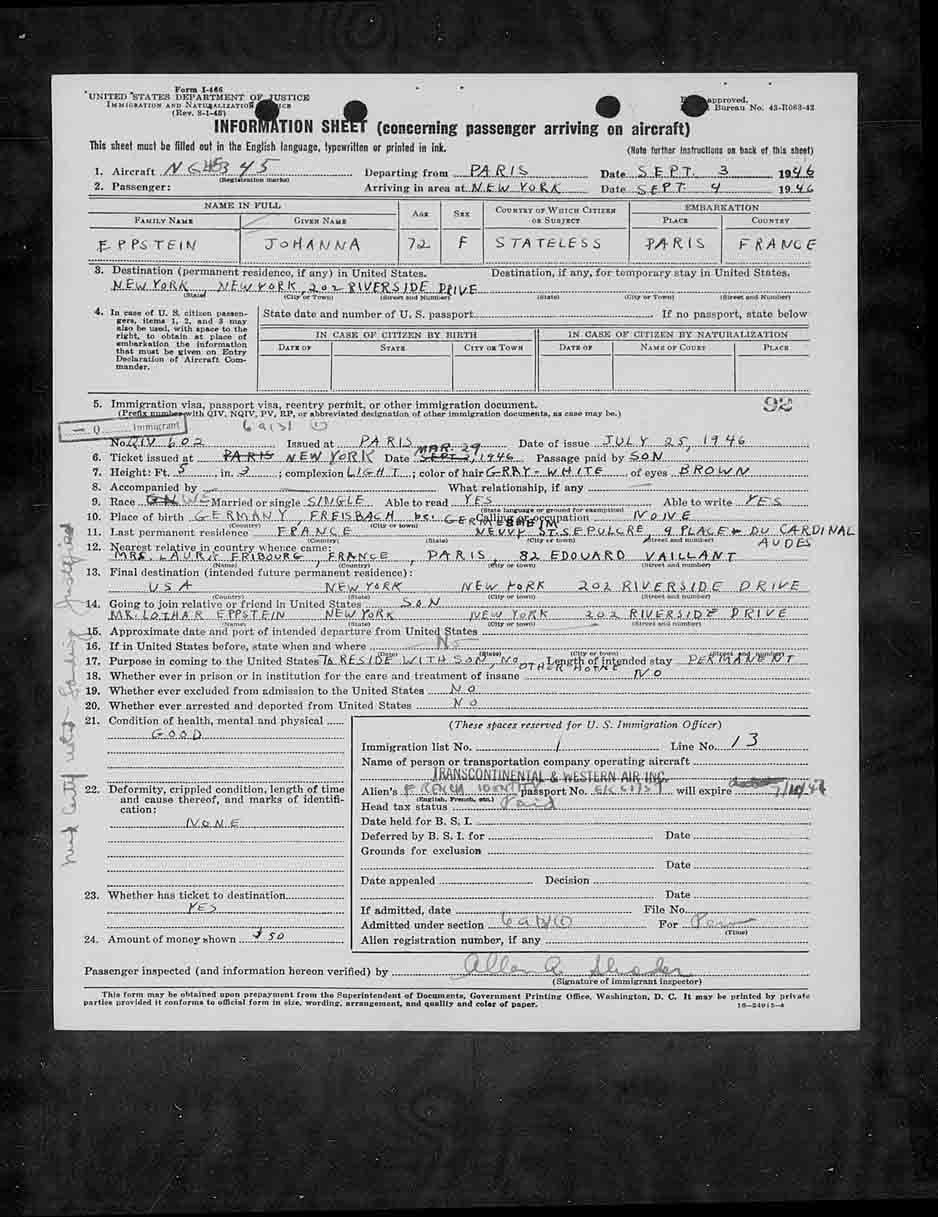 Form I-466
UNITED STATES DEPARTMENT OF JUSTICE
IMMIGRATION AND NATURALIZATION
(Rev. 8-1-45)
approved.
Bureau No. 43-R063-42
INFORMATION SHEET (concerning passenger arriving on aircraft)
This sheet must be filled out in the English language, typewritten or printed in ink.
(Note further instructions on back of this sheet)
1. Aircraft Departing from PARIS Date SEPT. 3 1946
(Registration marks)
2. Passenger: Arriving in area at NEW YORK Date SEPT 4 19.46
NAME IN FULL AGE SEX COUNTRY OF WHICH CITIZEN OR SUBJECT EMBARKATION
FAMILY NAME GIVEN NAME PLACE COUNTRY
EPPSTEIN JOHANNA 72 F STATELESS PARIS FRANCE
3. Destination (permanent residence, if any) in United States. Destination, if any, for temporary stay in United States.
NEW YORK NEW YORK, 202 RIVERSIDE DRIVE
(State) (City or Town) (Street and Number) (State) (City or Town) (Street and Number)
4. In case of U. S. citizen passengers, items 1, 2, and 3 may also be used, with space to the right, to obtain at place of embarkation the information that must be given on Entry Declaration of Aircraft Commander.
State date and number of U. S. passport. If no passport, state below
IN CASE OF CITIZEN BY BIRTH IN CASE OF CITIZEN BY NATURALIZATION
DATE OF STATE CITY OR TOWN DATE OF NAME OF COURT PLACE
5. Immigration visa, passport visa, reentry permit, or other immigration document. 92
(Prefix number with QIV, NQIV, PV, RP, or abbreviated designation of other immigration documents, as case may be.)
Q Immigrant
No. QIV 602 Issued at PARIS Date of issue JULY 25, 1946
MAR. 29
6. Ticket issued at PARIS NEW YORK Date SEPT. 3, 1946 Passage paid by SON
7. Height: Ft. 5 in. 3; complexion LIGHT; color of hair GRAY-WHITE of eyes BROWN
8. Accompanied by What relationship, if any
9. Race Married or single SINGLE Able to read YES Able to write YES
(State language or ground for exemption)
10. Place of birth GERMANY FREISBACH GERMESHEIM Calling or occupation NONE
(Country) (City or town)
11. Last permanent residence FRANCE NEUVY ST. SEPULCRE 9 PLACE DU CARDINAL
AUDES
(Country) (State) (City or town) (Street and number)
12. Nearest relative in country whence came:
MRS. LAURE FRIBOURG, FRANCE, PARIS, 82 EDOUARD VAILLANT
(Name) (Country) (City or town) (Street and number)
13. Final destination (intended future permanent residence):
USA NEW YORK NEW YORK 202 RIVERSIDE DRIVE
(Country) (State) (City or town) (Street and number)
14. Going to join relative or friend in United States SON
MR. LOTHAR EPPSTEIN NEW YORK NEW YORK 202 RIVERSIDE DRIVE
(Name) (State) (City or town) (Street and number)
15. Approximate date and port of intended departure from United States
16. If in United States before, state when and where No
(Date) (State) (City or town) (Street and number)
17. Purpose in coming to the United States TO RESIDE WITH SON, NO OTHER HOME Length of intended stay PERMANENT
18. Whether ever in prison or in institution for the care and treatment of insane NO
19. Whether ever excluded from admission to the United States NO
20. Whether ever arrested and deported from United States NO
21. Condition of health, mental and physical
GOOD
22. Deformity, crippled condition, length of time and cause thereof, and marks of identification:
NONE
23. Whether has ticket to destination
YES
24. Amount of money shown $50
(These spaces reserved for U. S. Immigration Officer)
Immigration list No. 1 Line No. 13
Name of person or transportation company operating aircraft
TRANSCONTINENTAL & WESTERN AIR INC.
Alien's FRENCH IDENTITY passport No. will expire
(English, French, etc.)
Head tax status Paid
Date held for B. S. I.
Deferred by B. S. I. for Date
Grounds for exclusion
Date
Date appealed Decision
Date
If admitted, date File No.
Admitted under section For Perm
(Time)
Alien registration number, if any
Passenger inspected (and information hereon verified) by
(Signature of immigrant inspector)
This form may be obtained upon prepayment from the Superintendent of Documents, Government Printing Office, Washington, D. C. It may be printed by private
parties provided it conforms to official form in size, wording, arrangement, and quality and color of paper. 16-24915-4